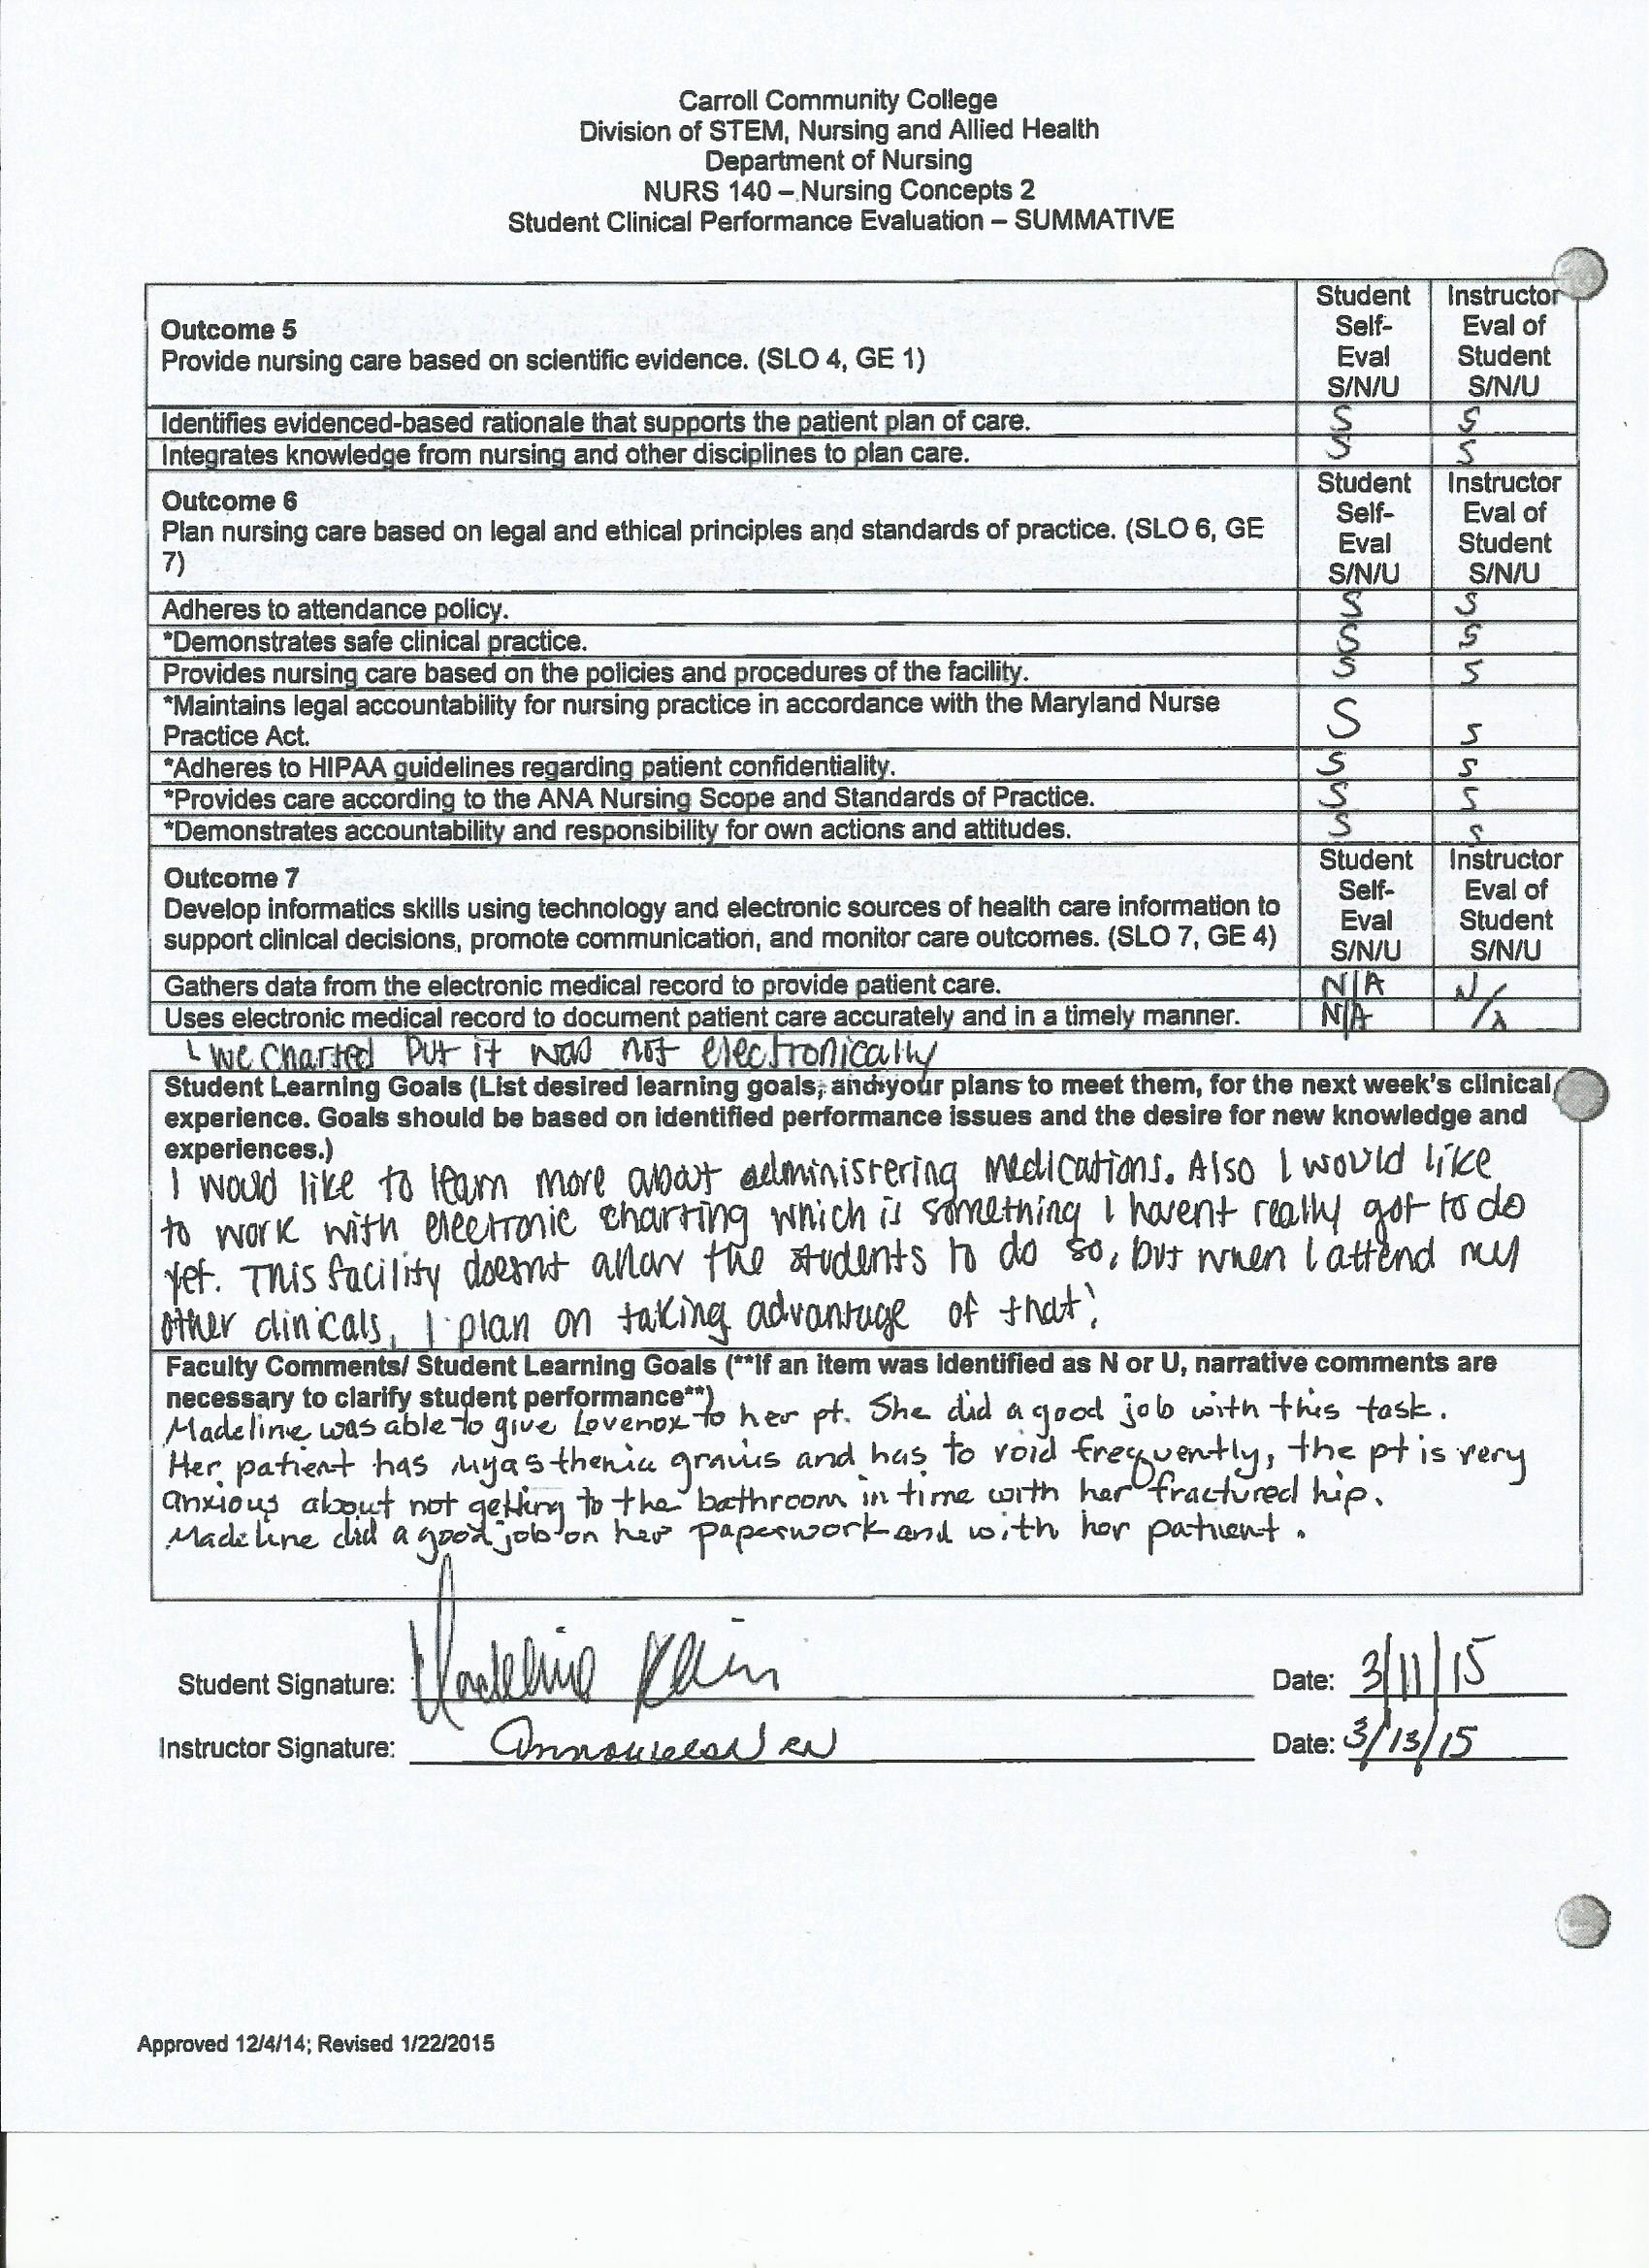 Carroll Community College
Division of STEM, Nursing and Allied Health
Department of Nursing
NURS 140 – Nursing Concepts 2
Student Clinical Performance Evaluation – SUMMATIVE
Outcome 5
Provide nursing care based on scientific evidence. (SLO 4, GE 1)
Student Self-Eval S/N/U
Instructor Eval of Student S/N/U
Identifies evidenced-based rationale that supports the patient plan of care. S S
Integrates knowledge from nursing and other disciplines to plan care. S S
Outcome 6
Plan nursing care based on legal and ethical principles and standards of practice. (SLO 6, GE
7)
Student Self-Eval S/N/U
Instructor Eval of Student S/N/U
Adheres to attendance policy. S S
*Demonstrates safe clinical practice. S S
Provides nursing care based on the policies and procedures of the facility. S S
*Maintains legal accountability for nursing practice in accordance with the Maryland Nurse
Practice Act. S S
*Adheres to HIPAA guidelines regarding patient confidentiality. S S
*Provides care according to the ANA Nursing Scope and Standards of Practice. S S
*Demonstrates accountability and responsibility for own actions and attitudes. S S
Outcome 7
Develop informatics skills using technology and electronic sources of health care information to
support clinical decisions, promote communication, and monitor care outcomes. (SLO 7, GE 4)
Student Self-Eval S/N/U
Instructor Eval of Student S/N/U
Gathers data from the electronic medical record to provide patient care. N/A N/
Uses electronic medical record to document patient care accurately and in a timely manner. N/A /A
we charted but it was not electronically
Student Learning Goals (List desired learning goals, and your plans to meet them, for the next week's clinical
experience. Goals should be based on identified performance issues and the desire for new knowledge and
experiences.)
I would like to learn more about administering medications. Also I would like
to work with electronic charting which is something I havent really got to do
yet. This facility doesnt allow the students to do so, but when I attend my
other clinicals, I plan on taking advantage of that!
Faculty Comments/ Student Learning Goals (**If an item was identified as N or U, narrative comments are
necessary to clarify student performance**)
Madeline was able to give Lovenox to her pt. She did a good job with this task.
Her patient has myasthenia gravis and has to void frequently, the pt is very
anxious about not getting to the bathroom in time with her fractured hip.
Madeline did a good job on her paperwork and with her patient.
Student Signature: Madeline Klein Date: 3/11/15
Instructor Signature: RN Date: 3/13/15
Approved 12/4/14; Revised 1/22/2015